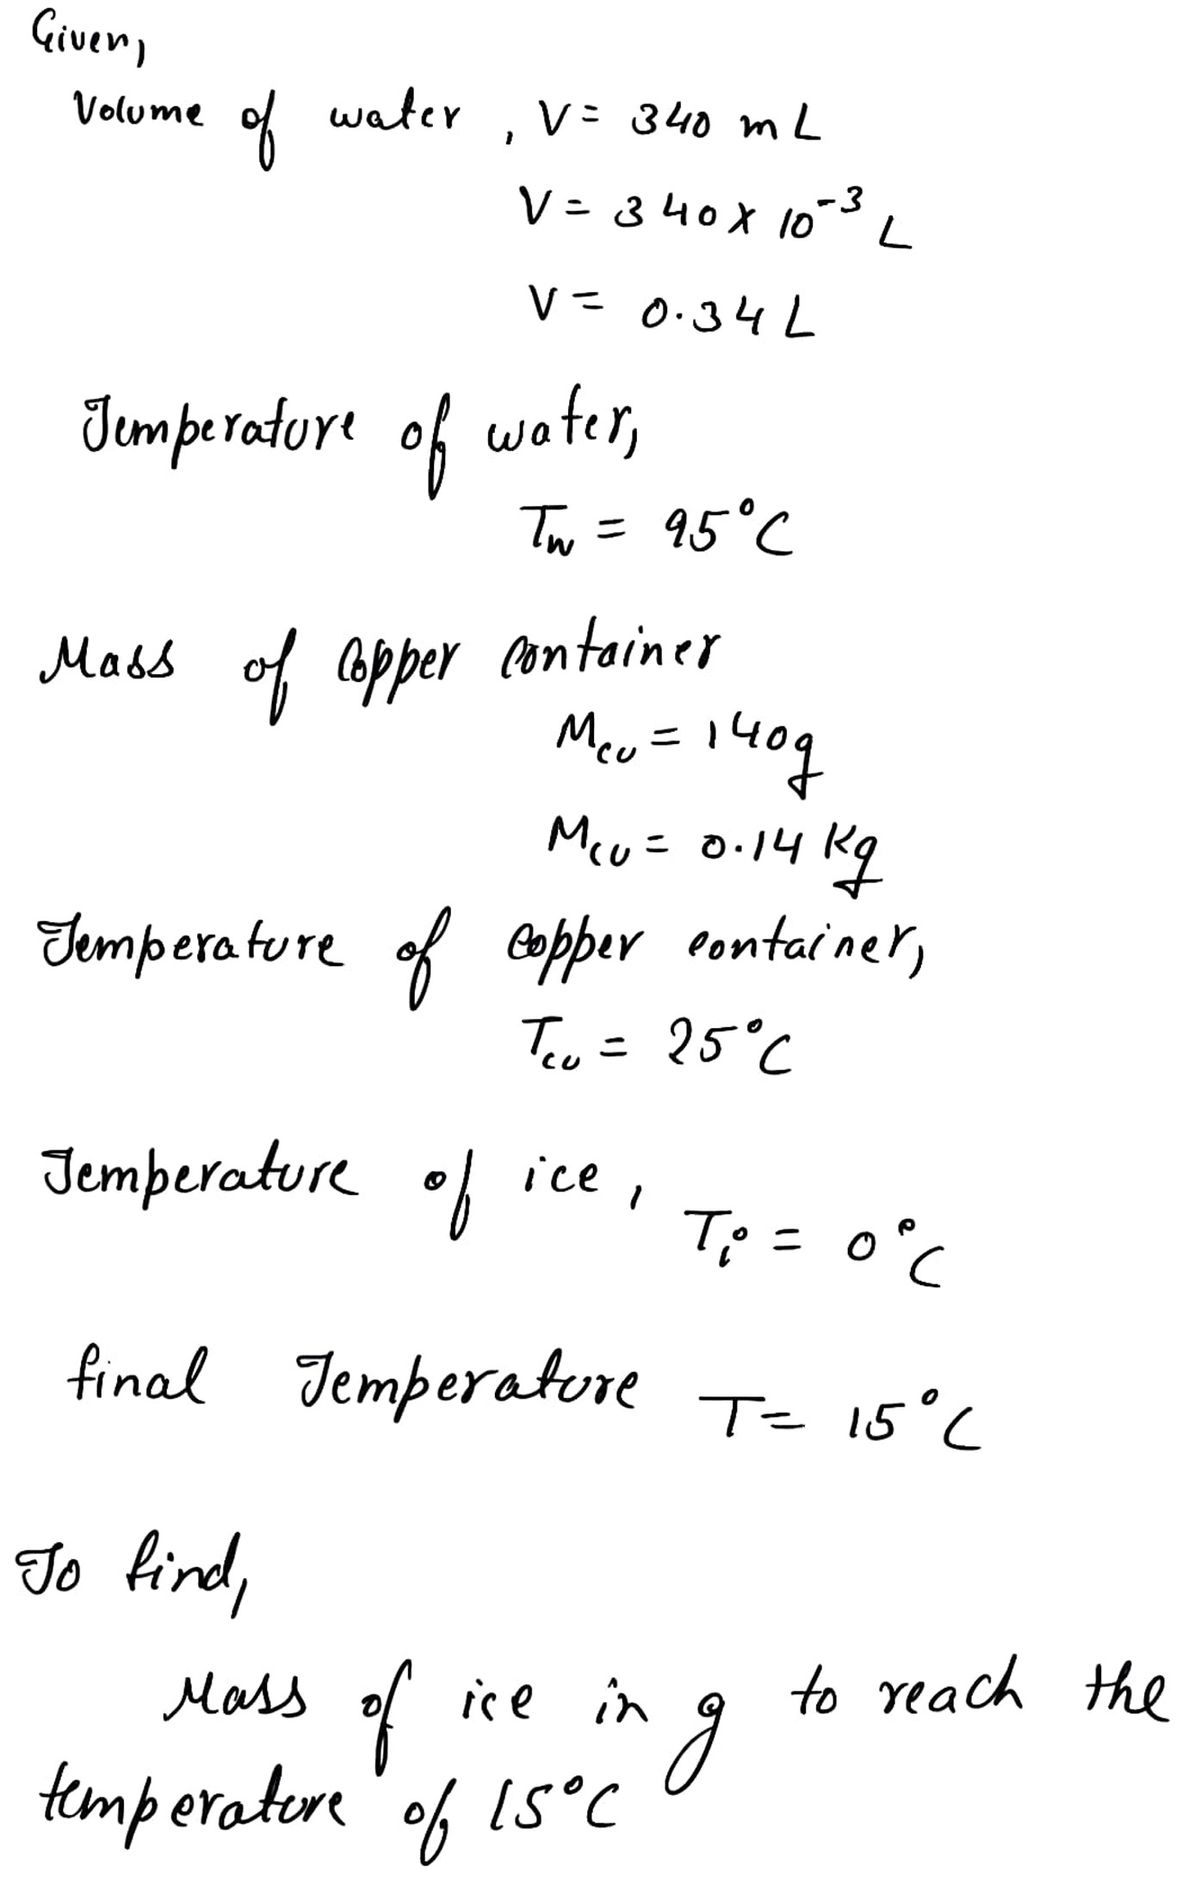 Given,
Volume of water, V = 340 mL
V = 340 x 10⁻³ L
V = 0.34 L
Temperature of water,
Tw = 95°C
Mass of Copper Container
Mcu = 140g
Mcu = 0.14 Kg
Temperature of copper container,
Tcu = 25°C
Temperature of ice, Ti = 0°C
final Temperature T = 15°C
To find,
Mass of ice in g to reach the
temperature of 15°C